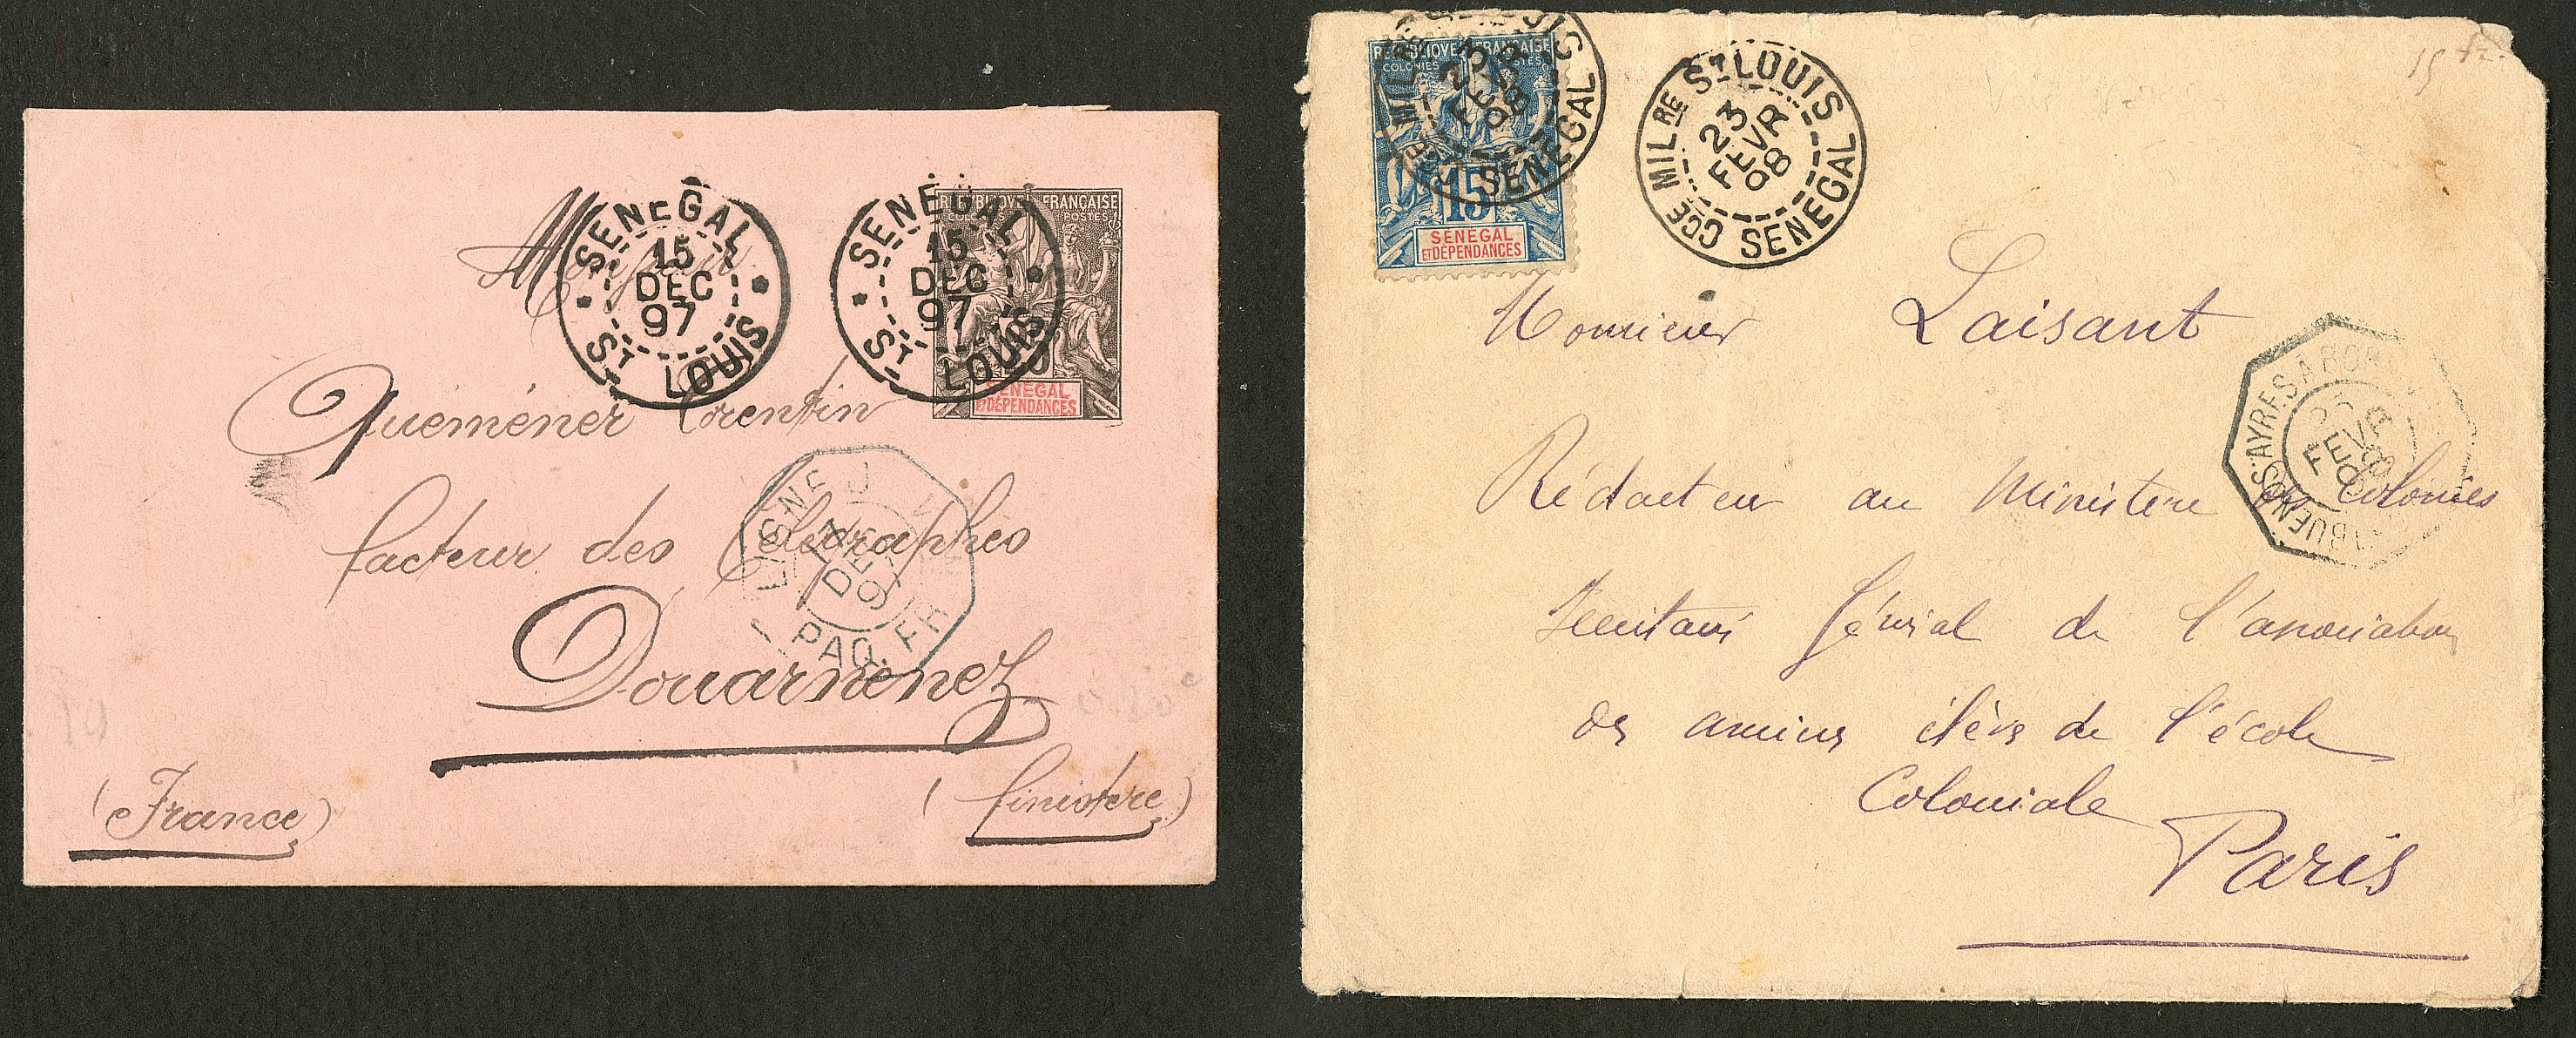 SENEGAL
15
DEC
97
ST LOUIS
SENEGAL
15
DEC
97
ST LOUIS
REPUBLIQUE FRANÇAISE
COLONIES POSTES
SENEGAL
ET DÉPENDANCES
Monsieur
Quéméner Corentin
facteur des Télégraphes
Douarnenez
(France)
(Finistère)
LIGNE J
17
DEC
97
PAQ. FR
19
REPUBLIQUE FRANÇAISE
COLONIES POSTES
15
SENEGAL
ET DÉPENDANCES
23
FEVR
98
SENEGAL
ST LOUIS
CCE MILRE
23
FEVR
98
SENEGAL
Monsieur Laisant
Rédacteur au Ministère des Colonies
Secrétaire Général de l'association
des anciens élèves de l'école
Coloniale
Paris
BUENOS-AYRES A BORD
FEVR
98
15